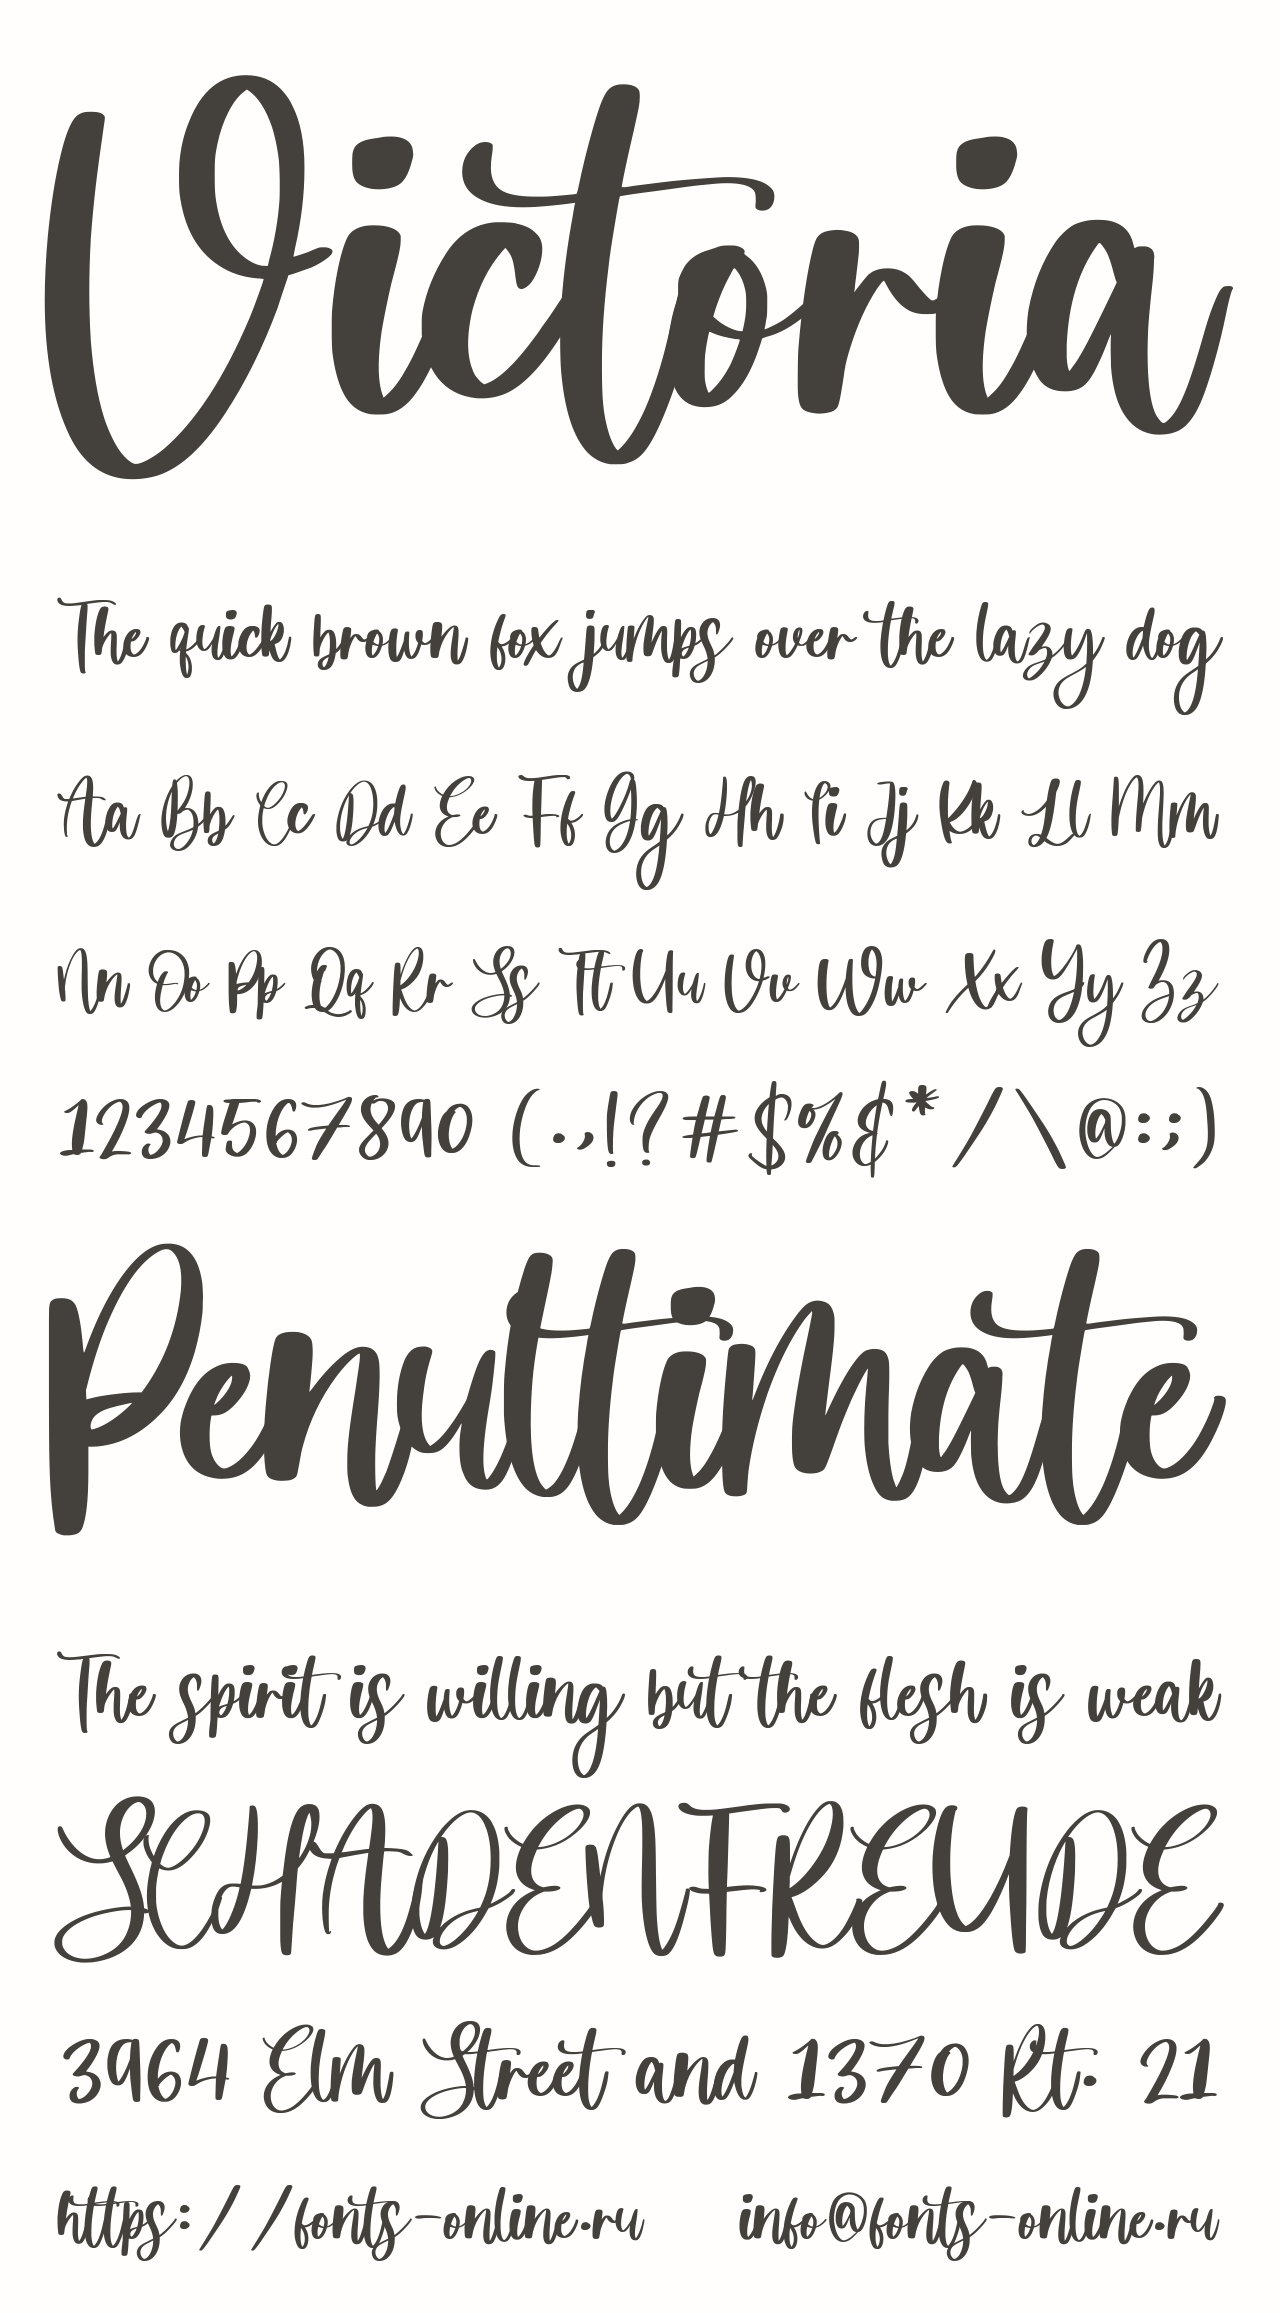 Victoria
The quick brown fox jumps over the lazy dog
Aa Bb Cc Dd Ee Ff Gg Hh Ii Jj Kk Ll Mm
Nn Oo Pp Qq Rr Ss Tt Uu Vv Ww Xx Yy Zz
1234567890 (.,!?#$%¢*/\@:;)
Penultimate
The spirit is willing but the flesh is weak
SCHADENFREUDE
3964 Elm Street and 1370 Rt. 21
https://fonts-online.ru info@fonts-online.ru